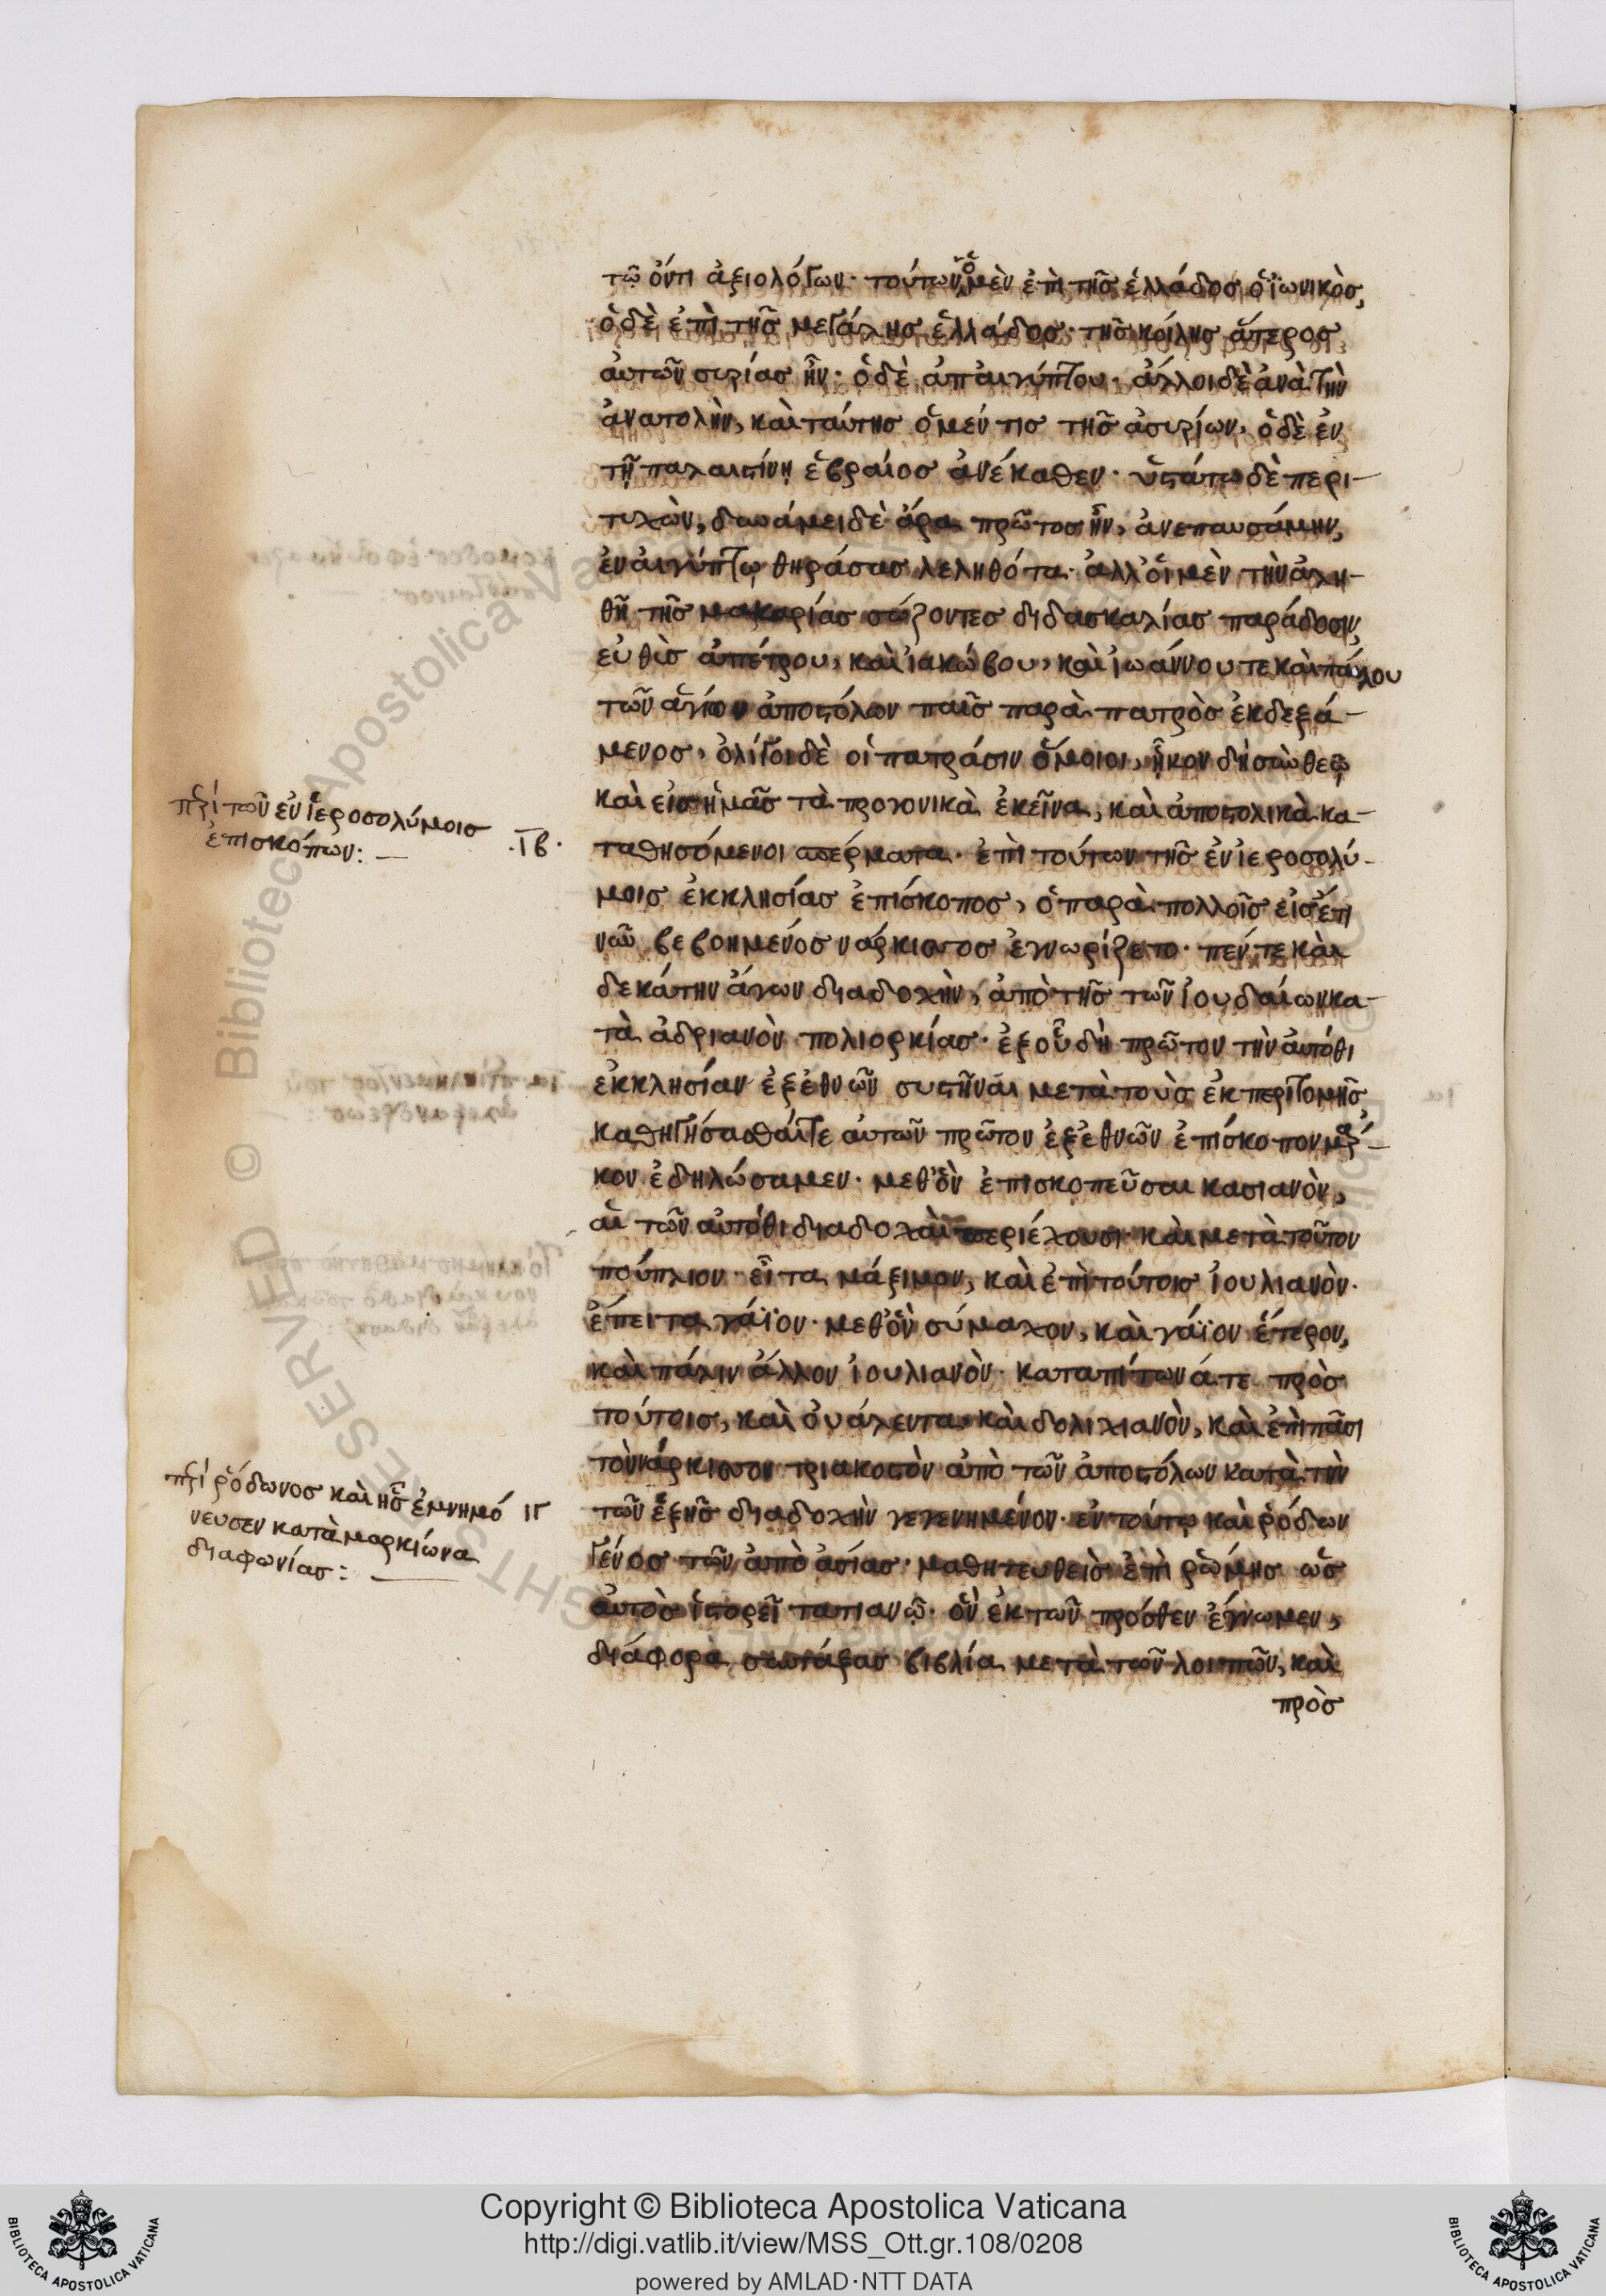 τῶ ὄντι ἀξιολόγων· τούτων ὁ μὲν ἐπὶ τῆσ ἑλλάδοσ ὁ ἰωνικὸσ,
ὁ δὲ ἐπὶ τῆσ μεγάλησ ἑλλάδοσ· τῆσ κοίλησ ἅτεροσ
αὐτῶν συρίασ ἦν· ὁ δὲ ἀπ αἰγύπτου· ἄλλοι δὲ ἀνὰ τὴν
ἀνατολὴν, καὶ ταύτησ ὁ μέν τισ τῆσ ἀσυρίων, ὁ δὲ ἐν
τῆ παλαιστίνη ἑβραῖοσ ἀνέκαθεν· ὑστάτω δὲ περι-
τυχὼν, δυνάμει δὲ ἄρα πρῶτοσ ἦν, ἀνεπαυσάμην,
ἐν αἰγύπτω θηράσασ λεληθότα· ἀλλ' οἱ μὲν τὴν ἀλη-
θῆ τῆσ μακαρίασ σώζοντεσ διδασκαλίασ παράδοσιν,
εὐθὺσ ἀπέτρου, καὶ ἰακώβου, καὶ ἰωάννου τε καὶ παύλου
τῶν ἁγίων ἀποστόλων παῖσ παρὰ πατρὸσ ἐκδεξά-
μενοσ, ὀλίγοι δὲ οἱ πατράσιν ὅμοιοι, ἧκον δὴ σὺν θεῶ
καὶ εἰσ ἡμᾶσ τὰ προγονικὰ ἐκεῖνα, καὶ ἀποστολικὰ κα-
ταθησόμενοι σπέρματα· ἐπὶ τούτων τῆσ ἐν ἱεροσολύ-
μοισ ἐκκλησίασ ἐπίσκοποσ, ὁ παρὰ πολλοῖσ εἰσέτι
νῦν βεβοημένοσ νάρκισσοσ ἐγνωρίζετο· πέντε καὶ
δεκάτην ἄγων διαδοχὴν, ἀπὸ τῆσ τῶν ἰουδαίων κα-
τὰ ἀδριανὸν πολιορκίασ· ἐξ οὗ δὴ πρῶτον τὴν αὐτόθι
ἐκκλησίαν ἐξ ἐθνῶν συστῆναι μετὰ τοὺσ ἐκ περιτομῆσ
καθηγήσασθαί τε αὐτῶν πρῶτον ἐξ ἐθνῶν ἐπίσκοπον μάρ-
κον ἐδηλώσαμεν· μεθ' ὃν ἐπισκοπεῦσαι κασιανὸν,
αἱ τῶν αὐτόθι διαδοχαὶ περιέχουσι· καὶ μετὰ τοῦτον
πούπλιον· εἶτα μάξιμον, καὶ ἐπὶ τούτοισ ἰουλιανὸν·
ἔπειτα γάϊον· μεθ' ὃν σύμαχον, καὶ γάϊον ἕτερον,
καὶ πάλιν ἄλλον ἰουλιανὸν· καταπίτωνά τε πρὸσ
τούτοισ, καὶ οὐάλεντα· καὶ δολιχιανὸν, καὶ ἐπὶ πᾶσι
τὸν νάρκισσον τριακοστὸν ἀπὸ τῶν ἀποστόλων κατὰ τὴν
τῶν ἑξῆσ διαδοχὴν γεγενημένον· ἐν τούτω καὶ ῥόδων
γένοσ τῶν ἀπὸ ἀσίασ· μαθητευθεὶσ ἐπὶ ῥώμησ ὡσ
αὐτὸσ ἱστορεῖ τατιανῶ· ὃν ἐκ τῶν πρόσθεν ἔγνωμεν,
διάφορα συντάξασ βιβλία μετὰ τῶν λοιπῶν, καὶ
πρὸσ
περὶ τῶν ἐν ἱεροσολύμοισ
ἐπισκόπων: —
·ΙΒ·
περὶ ῥόδωνοσ καὶ ἧσ ἐμνημό
νευσεν κατὰ μαρκίωνα
διαφωνίασ: —
ΙΓ
© Biblioteca Apostolica Vaticana
Copyright © Biblioteca Apostolica Vaticana
http://digi.vatlib.it/view/MSS_Ott.gr.108/0208
powered by AMLAD·NTT DATA
BIBLIOTECA APOSTOLICA VATICANA
BIBLIOTECA APOSTOLICA VATICANA